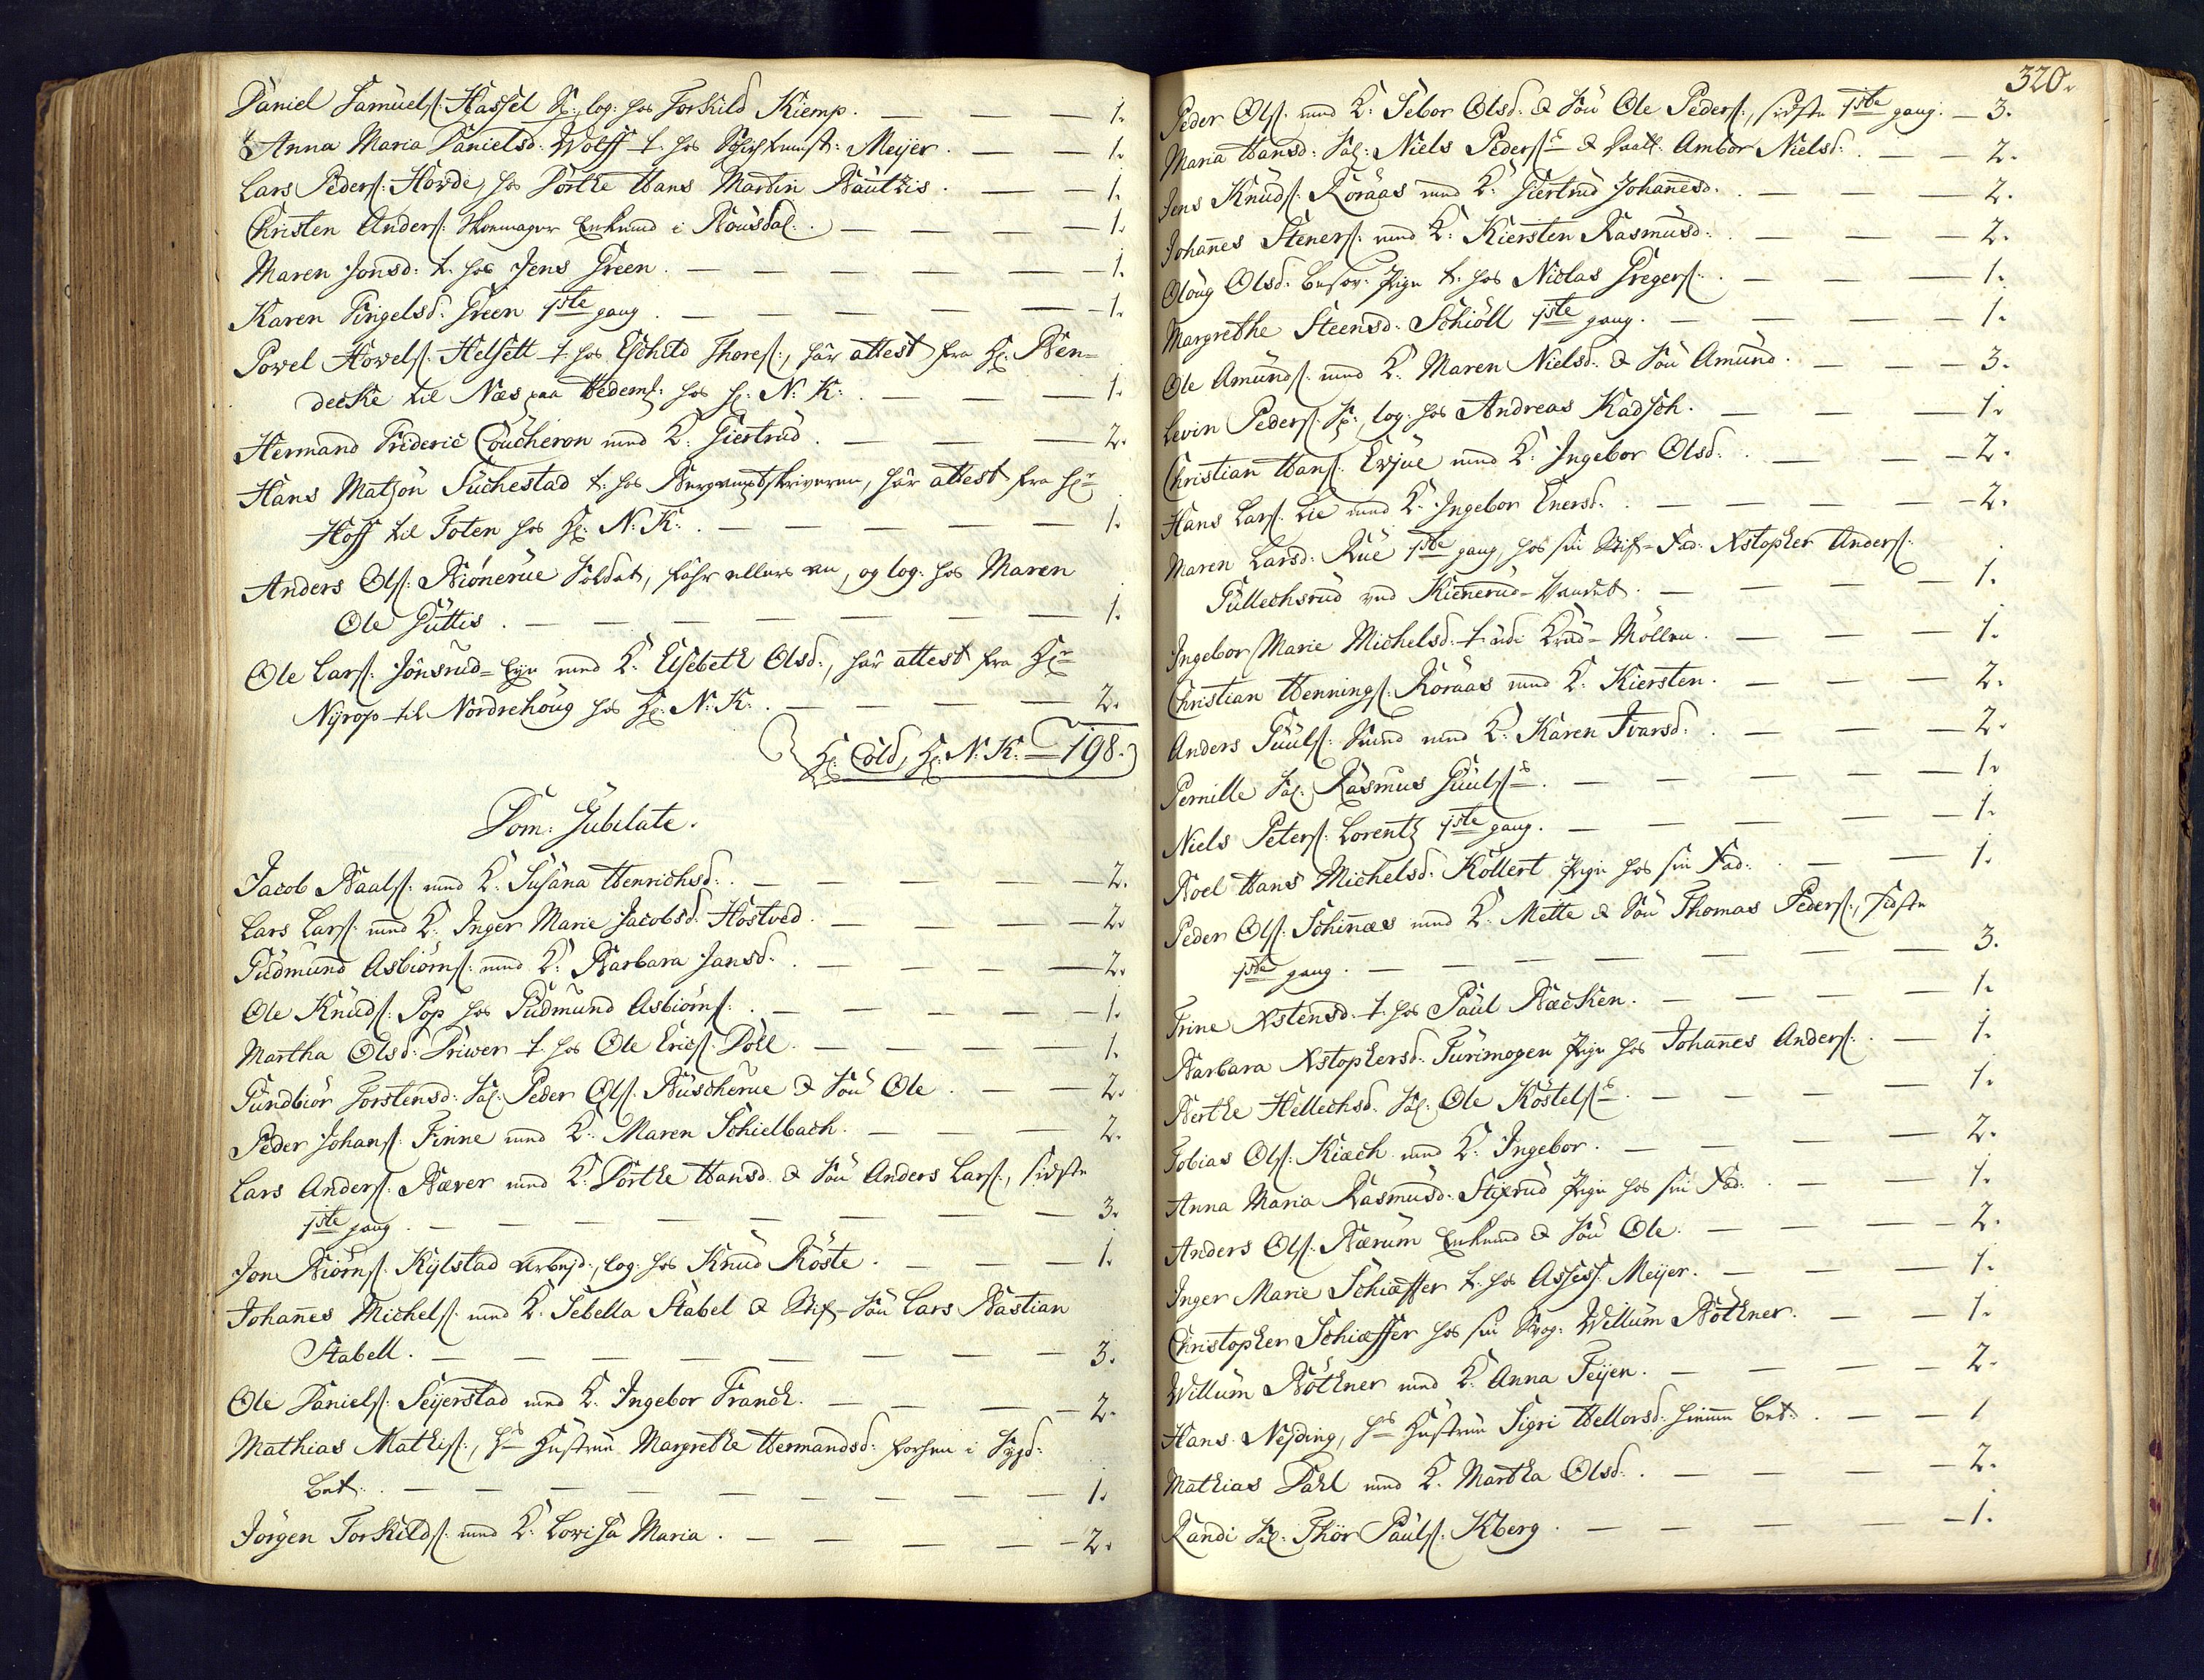 Daniel Samuels: Hassel S:, log: hos Torkild Kiemp. — — — 1.
Anna Maria Danielsd: Wolff t. hos Meijer. — — 1.
Lars Peders: Hovde, hos Dorthe Hans Martin Bauthis. — — 1.
Christen Anders: Skomager Enkemd i Bousdal. — — — 1.
Maren Jonsd: t. hos Jens Green. — — — — 1.
Karen Gingelsd: Green 1ste gang. — — — — 1.
Povel Hovels: Helsett t. hos Eschild Thores:, har attest fra Hr: Ben=
decke til Næs paa Hedem: hos Hr: N: K: — — — 1.
Hermand Frideric Coucheron med K: Giertrud. — — — 2.
Hans Matson Suchestad t. hos Bergamptskriveren, har attest fra Hr
Hoff til Toten hos Hr: N: K: — — — — 1.
Anders Ols: Biönerue Soldat, og log: hos Maren
Ole Guttis. — — — — — — 1.
Ole Lars: Jonsrud=Eye med K: Elsebeth Olsd:, har attest fra Hr
Nyrop til Nordrehoug hos Hr: N: K: — — — — 2.
Hr: Cold, Hr: N. K: — 198.
Dom: Jubilate.
Jacob Baals: med K: Susana Henrichsd: — — — — 2.
Lars Lars: med K: Inger Marie Jacobsd: Hostved. — — — 2.
Gudmund Asbiörns: med K: Barbara Jansd: — — — — 2.
Ole Knuds: Pop hos Gudmund Asbiörns: — — — — 1.
Martha Olsd: Driwer t. hos Ole Erics: Doll. — — — 1.
Gundbiör Torstensd: Sal: Peder Ols: Buscherue & Sön Ole. — — 2.
Peder Johans: Finne med K: Maren Schielbach. — — — 2.
Lars Anders: Bæver med K: Dorthe Hansd: & Sön Anders Lars:, sidste
1ste gang. — — — — — — 3.
Jon Biörns: Kylstad Arbejd:, log: hos Knud Röste. — — — 1.
Johanes Michels: med K: Sebella Stabel & Stif-Sön Lars Bastian
Stabell. — — — — — — 3.
Ole Daniels: Seijerstad med K: Ingebor Franch. — — — 2.
Mathias Mathis:, hs Hustrue Margrethe Hermandsd: forhen i Sygd:
Bet: — — — — — — 1.
Jörgen Torkilds: med K: Lovisa Maria. — — — — 2.
320.
Peder Ols: med K: Sebor Olsd: & Sön Ole Peders:, sidste 1ste gang. — 3.
Maria Hansd: Sal: Niels Peders: & Datt: Ambor Nielsd: — — 2.
Jens Knuds: Roraas med K: Giertrud Johanesd: — — — 2.
Johanes Steners: med K: Kiersten Rasmusd: — — — 2.
Oloug Olsd: besov: Pige t. hos Niclas Gregers: — — — 1.
Margrethe Steensd: Schiöll 1ste gang. — — — — 1.
Ole Amunds: med K: Maren Nielsd: & Sön Amund. — — — 3.
Levin Peders: S:, log: hos Andreas Kadsch. — — — — 1.
Christian Hans: Evjue med K: Ingebor Olsd: — — — 2.
Hans Lars: Lie med K: Ingebor Enersd: — — — — 2.
Maren Larsd: Rue 1ste gang, hos sin Stif-Fad: Xstopher Anders:
Gullechsrud ved Kienerud-Vandet. — — — — 1.
Ingebor Marie Michelsd: t. udi Krud-Möllen. — — — 1.
Christian Hennings: Roraas med K: Kiersten. — — — 2.
Anders Guuls: Smed med K: Karen Ivarsd: — — — 2.
Pernille Sal: Rasmus Guuls: — — — — — 1.
Niels Peters: Lorentz 1ste gang. — — — — — 1.
Boel Hans Michelsd: Kollert Pige hos sin Fad: — — — 1.
Peder Ols: Schinæs med K: Mette & Sön Thomas Peders:, sidste
1ste gang. — — — — — — 3.
Trine Xstensd: t. hos Paul Bæcken. — — — — 1.
Barbara Xstophersd: Furimogen Pige hos Johanes Anders: — 1.
Berthe Hellechsd: Sal: Ole Köstels: — — — — 1.
Tobias Ols: Kiach med K: Ingebor. — — — — 2.
Anna Maria Rasmusd: Stixrud Pige hos sin Fad: — — 1.
Anders Ols: Bærum Enkemd & Sön Ole. — — — 2.
Inger Marie Schiæffer t. hos Assess: Meijer. — — — 1.
Christopher Schiæffer hos sin Svog: Willum Böthner. — — 1.
Willum Böthner med K: Anna Feijen. — — — — 2.
Hans Nejding, hs Hustrue Sigri Hellorsd: hiemme Bet: — — 1
Mathias Dahl med K: Martha Olsd: — — — — 2.
Randi Sal: Thör Pauls: Kberg. — — — — — 1.